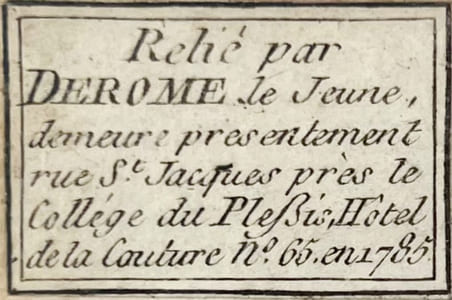 Relié par
DEROME le Jeune,
demeure presentement
rue St. Jacques près le
Collége du Pleßis, Hôtel
de la Couture No. 65. en 1785.